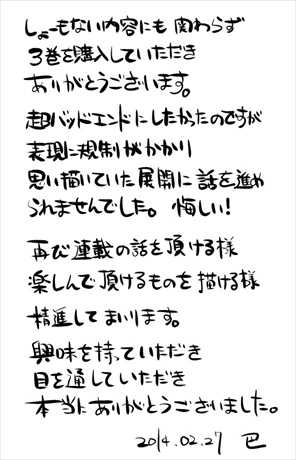 しょーもない内容にも関わらず
3巻を購入していただき
ありがとうございます。
超バッドエンドにしたかったのですが
表現に規制がかかり
思い描いていた展開に話を進め
られませんでした。悔しい!
再び連載の話を頂ける様
楽しんで頂けるものを描ける様
精進してまいります。
興味を持っていただき
目を通していただき
本当にありがとうございました。
2014.02.27 巴